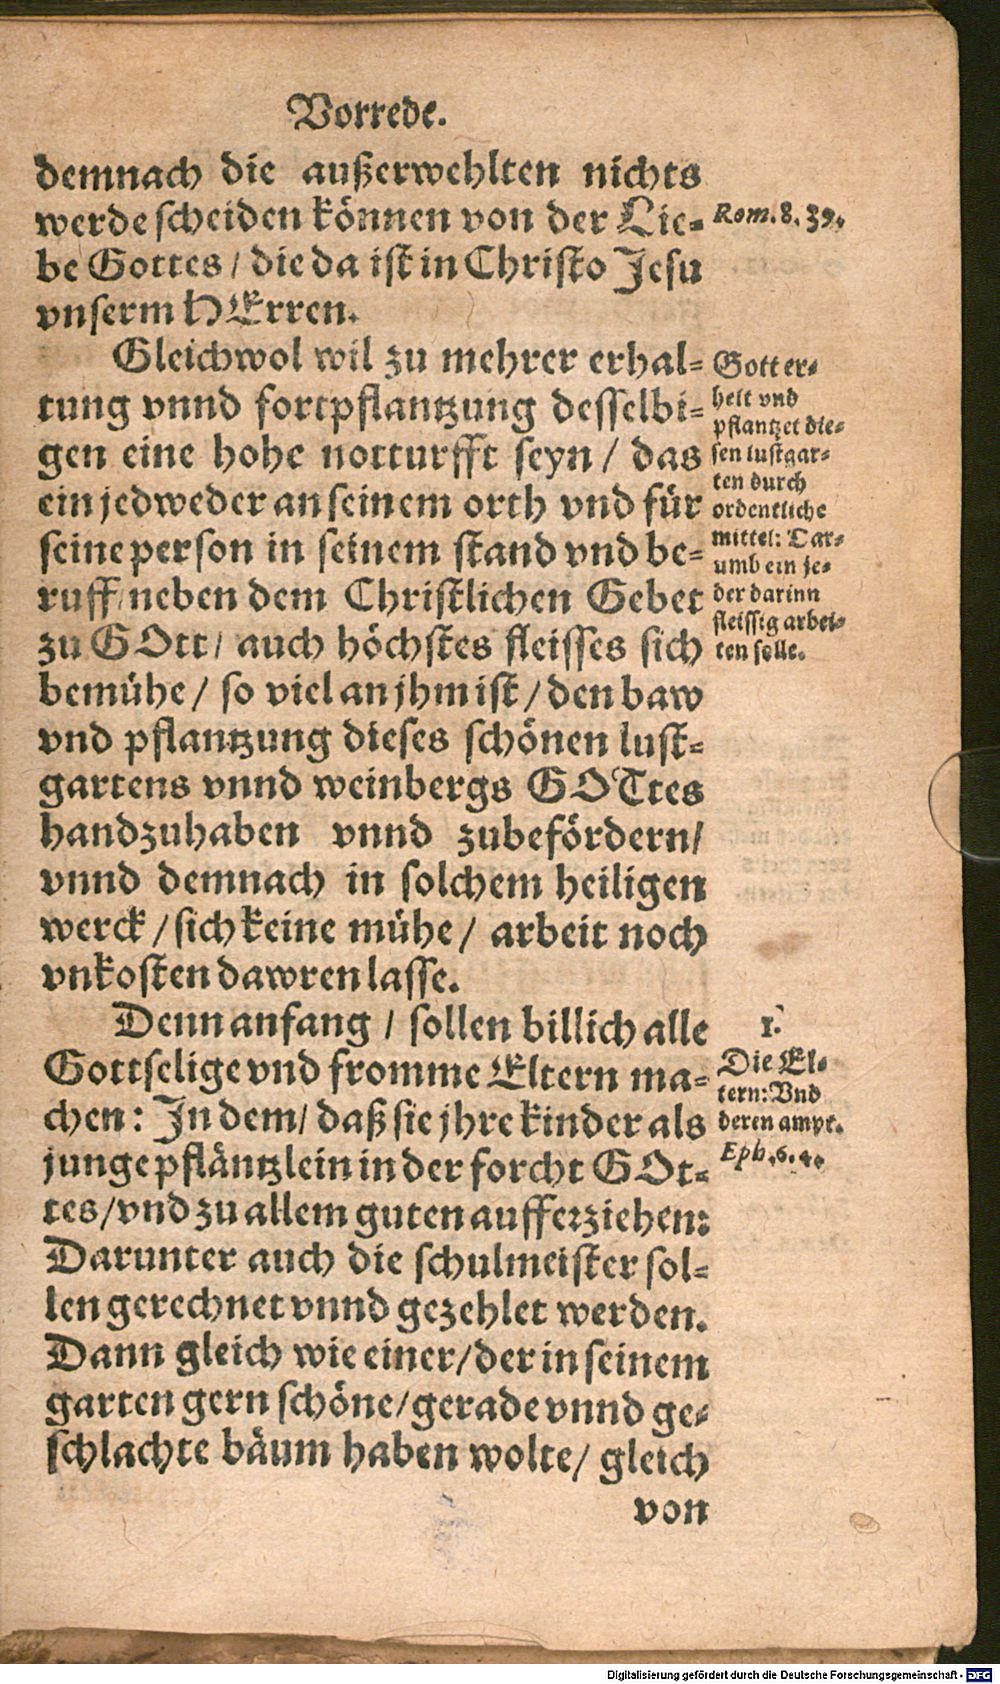 Vorrede.
demnach die außerwehlten nichts
werde scheiden können von der Lie-
be Gottes / die da ist in Christo Jesu
vnserm HErren.
Gleichwol wil zu mehrer erhal-
tung vnnd fortpflantzung desselbi-
gen eine hohe notturfft seyn / das
ein jedweder an seinem orth vnd für
seine person in seinem stand vnd be-
ruff / neben dem Christlichen Gebet
zu GOtt / auch höchstes fleisses sich
bemühe / so viel an jhm ist / den baw
vnd pflantzung dieses schönen lust-
gartens vnnd weinbergs GOTtes
handzuhaben vnnd zubefördern /
vnnd demnach in solchem heiligen
werck / sich keine mühe / arbeit noch
vnkosten dawren lasse.
Denn anfang / sollen billich alle
Gottselige vnd fromme Eltern ma-
chen: In dem / daß sie jhre kinder als
junge pfläntzlein in der forcht GOt-
tes / vnd zu allem guten aufferziehen:
Darunter auch die schulmeister sol-
len gerechnet vnnd gezehlet werden.
Dann gleich wie einer / der in seinem
garten gern schöne / gerade vnnd ge-
schlachte bäum haben wolte / gleich
von
Rom. 8. 39.
Gott er-
helt vnd
pflantzet die-
sen lustgar-
ten durch
ordentliche
mittel: Dar-
umb ein je-
der darinn
fleissig arbei-
ten solle.
1.
Die El-
tern: Vnd
deren ampt.
Eph. 6. 4.
Digitalisierung gefördert durch die Deutsche Forschungsgemeinschaft - DFG